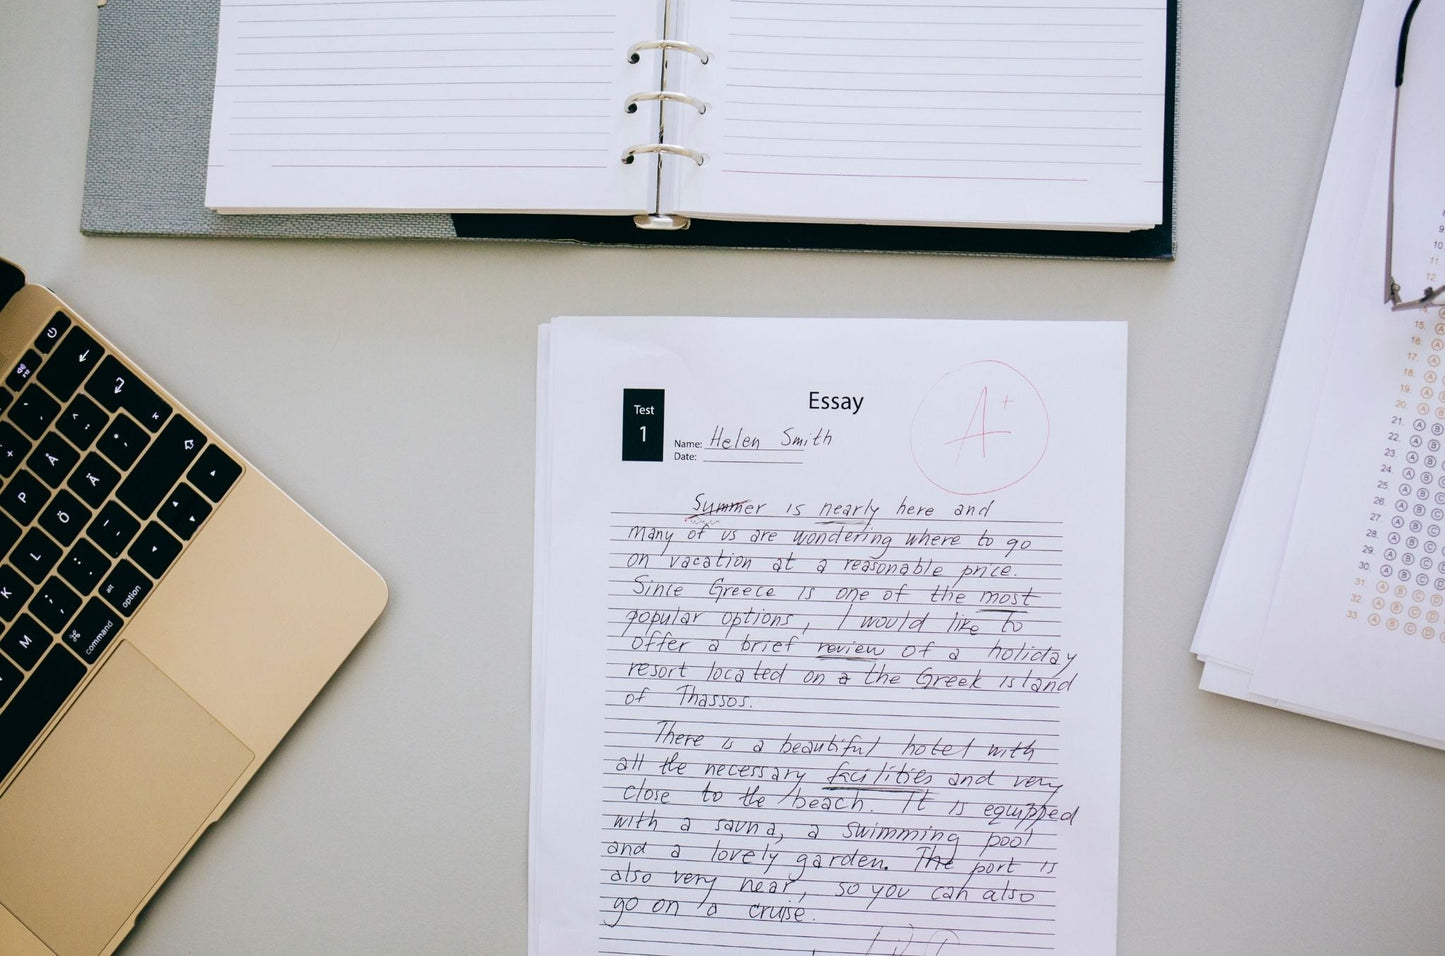 Essay
Test
1
A+
Name: Helen Smith
Date:
Summer is nearly here and
many of us are wondering where to go
on vacation at a reasonable price.
Since Greece is one of the most
popular options, I would like to
offer a brief review of a holiday
resort located on a the Greek island
of Thassos.
There is a beautiful hotel with
all the necessary facilities and very
close to the beach. It is equipped
with a sauna, a swimming pool
and a lovely garden. The port is
also very near, so you can also
go on a cruise.
P
L
K
M
Ö
Å
Ä
alt
option
command
9.
10.
11.
12.
14.
15. A
16. A
17. A
18. A
19. A
20. A
21. A B
22. A B
23. A B
24. A B
25. A B
26. A B C
27. A B C
28. A B C
29. A B C
30. A B C D
31. A B C D
32. A B C D
33. A B C D